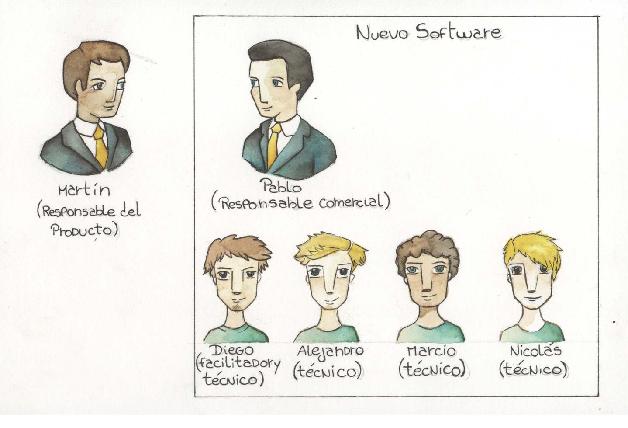 Nuevo Software
Martín
(Responsable del
Producto)
Pablo
(Responsable comercial)
Diego
(facilitador y
técnico)
Alejandro
(técnico)
Marcio
(técnico)
Nicolás
(técnico)